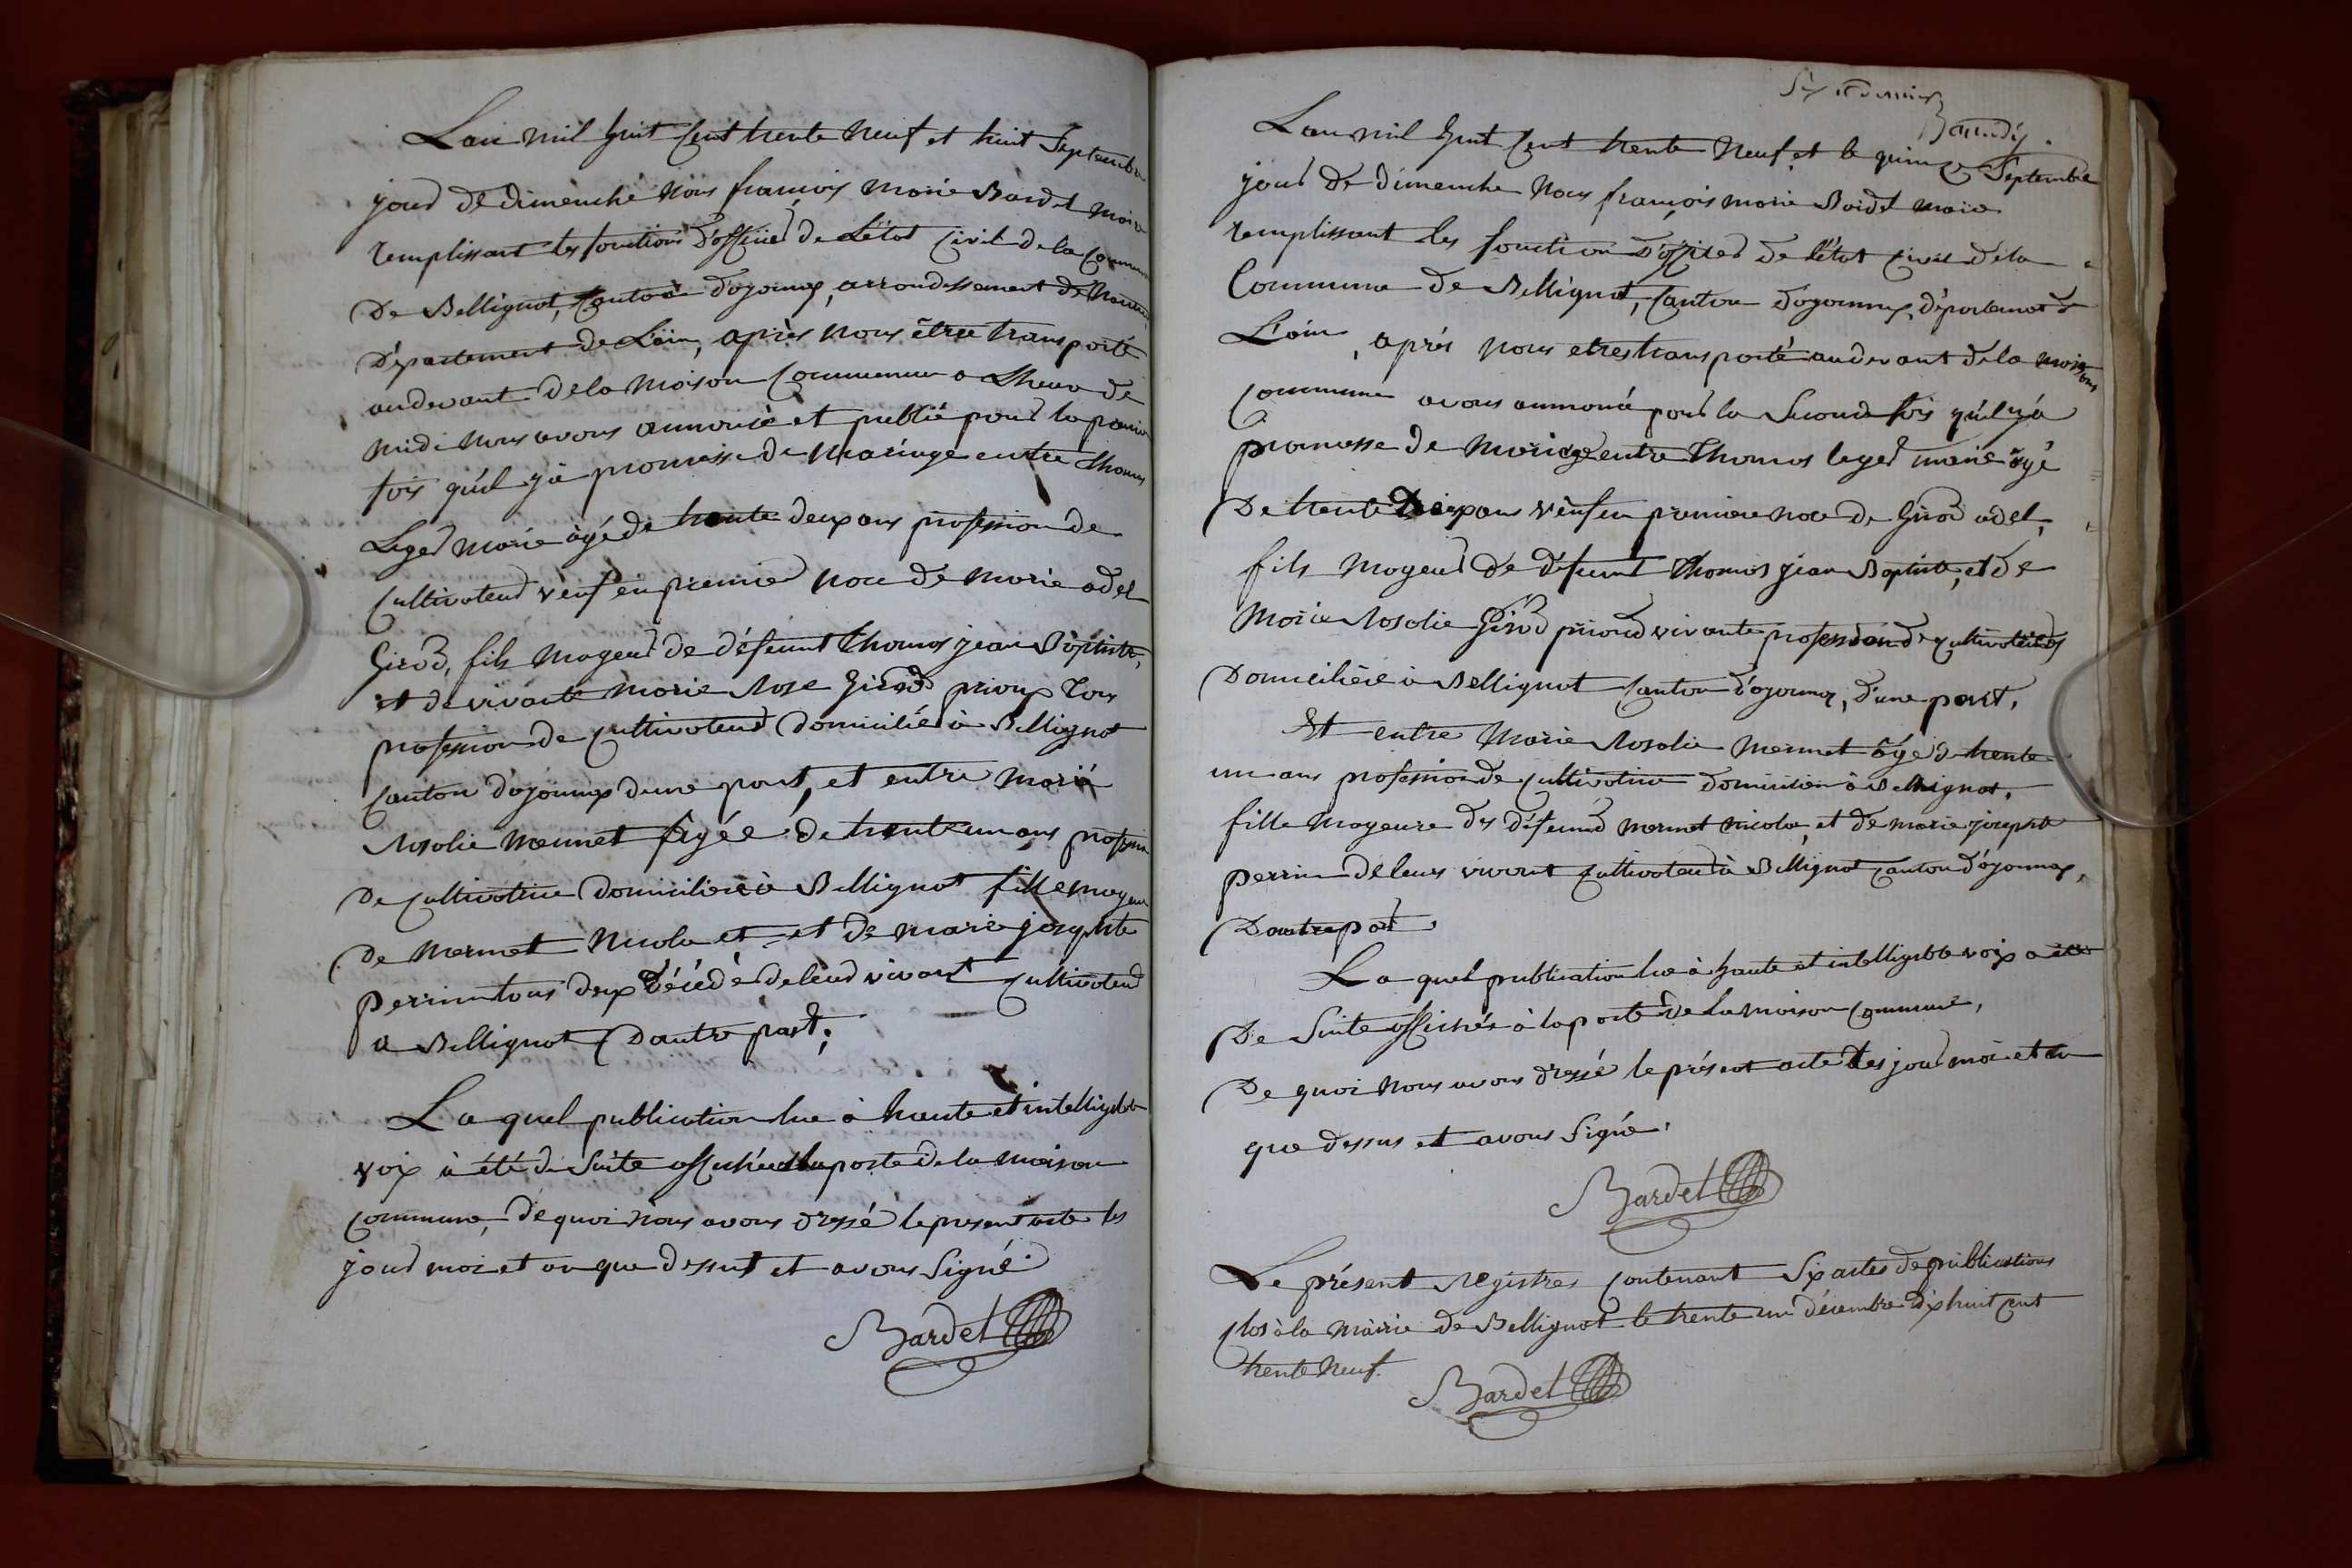 Lan mil huit Cent trente Neuf et huit Septembre
jour de dimenche nous françois marie Bardet maire
remplissant les fonctions d'officier de L'état Civil de la Commune
De Bellignat, Canton d'oyonnax, arrondissement de Nantua
Département de L'ain, après nous être transporté
audevant de la maison Commune a Lheure de
midi nous avons annoncé et publié pour la premier
fois qu'il yà promesse de mariage entre thomas
Leger marie âgé de trente deux ans profession de
Cultivateur veuf en premier noce de marie adel
Girod, fils mageur de défeunt thomas jean Baptiste,
et de vivante marie Rose Girod prioux tous
profession de Cultivateur domicilié à Bellignat
Canton d'oyonnax dune part, et entre marie
Rosalie mermet âgée de trente un ans profession
De Cultivatrice domiciliéé à Bellignat fille mageure
De mermet Nicola et et de marie josephte
Perrin tous deux décédé de leur vivant Cultivateur
a Bellignat Dautre part.
La quel publication lue à haute et intelligeble
voix à été de Suite affichée à la porte de la maison
Commune, de quoi nous avons dressé le present acte les
jour moi et an que dessus et avons Signé.
Bardet
Lan mil huit Cent trente Neuf et le quinze Septembre
jour de dimenche nous françois marie Bardet maire
remplissant les fonction d'officier de l'état Civil dela
Commune de Bellignat, Canton d'oyonnax, département de
L'ain, aprés nous etre transporté audevant de la maison
Commune avons annoncé pour la Seconde fois qu'il y'a
promesse de mariage entre thomas leger marie âgé
De trente deux ans veuf en premiere noce de Girod adel,
fils mageur de défeunt thomas jean Baptiste, et de
marie Rosalie Girod vivante profession de Cultivateurs
Domiciliéé à Bellignat Canton d'oyonnax, d'une part,
Et entre marie Rosalie mermet âgé de trente
un ans profession de Cultivatrice domiciliée à Bellignat,
fille mageure des défeund mermet nicola, et de marie josephte
perrin de leurs vivant Cultivateur à Bellignat Canton d'oyonnax,
Dautre part,
La quel publication lue à haute et intelligeble voix a été
De Suite affichée à la porte de la maison Commune,
De quoi nous avons dressé le présent acte les jour moi et an
que dessus et avons Signé,
Bardet
Le présent registres Contenant Six actes de publications
Clos à la mairie de Bellignat le trente un décembre dix huit Cent
trente Neuf.
Bardet